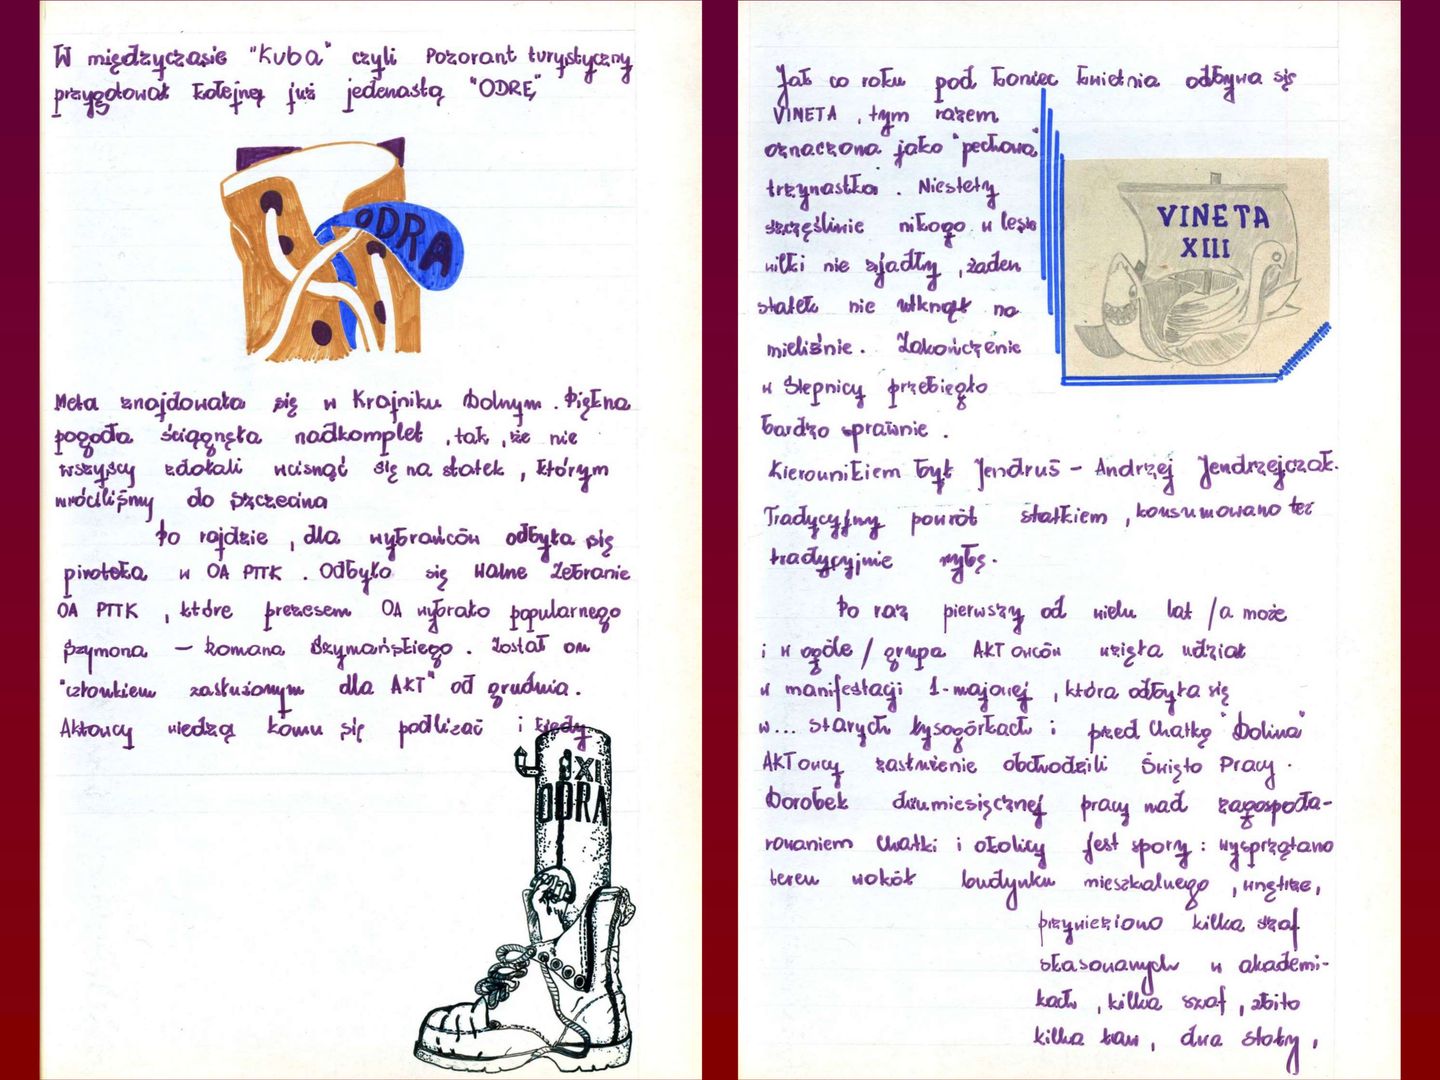 W międzyczasie "Kuba" czyli Pozorant turystyczny
przygotował kolejną już jedenastą "ODRĘ"
ODRA
Meta znajdowała się w Krajniku Dolnym. Piękna
pogoda ściągnęła nadkomplet, tak, że nie
wszyscy zdołali wcisnąć się na statek, którym
wróciliśmy do Szczecina
Po rajdzie, dla wybrańców odbyła się
piroteka w OA PTTK. Odbyło się Walne Zebranie
OA PTTK, które prezesem OA wybrało popularnego
Szymona – Romana Szymańskiego. Został on
"członkiem zasłużonym dla AKT" od grudnia.
Aktowcy wiedzą komu się podlizać i kiedy
XI
ODRA
Jak co roku pod koniec kwietnia odbywa się
VINETA, tym razem
oznaczona jako "pechowa"
trzynastka. Niestety
szczęśliwie nikogo w lesie
wilki nie zjadły, żaden
statek nie utknął na
mieliźnie. Zakończenie
w Stepnicy przebiegło
bardzo sprawnie.
VINETA
XIII
Kierownikiem był Jendruś – Andrzej Jendrzejczak.
Tradycyjny powrót statkiem, konsumowano też
tradycyjnie rybę.
Po raz pierwszy od wielu lat /a może
i w ogóle/ grupa AKTowców wzięła udział
w manifestacji 1-majowej, która odbyła się
w... starych Łysogórkach i przed Chatką "Dolina"
AKTowcy zasłużenie obchodzili Święto Pracy.
Dorobek dwumiesięcznej pracy nad zagospoda-
rowaniem Chatki i okolicy jest spory: wysprzątano
teren wokół budynku mieszkalnego, wnętrze,
przywieziono kilka szaf
skasowanych w akademi-
kach, kilka szaf, zbito
kilka ław, dwa stoły,